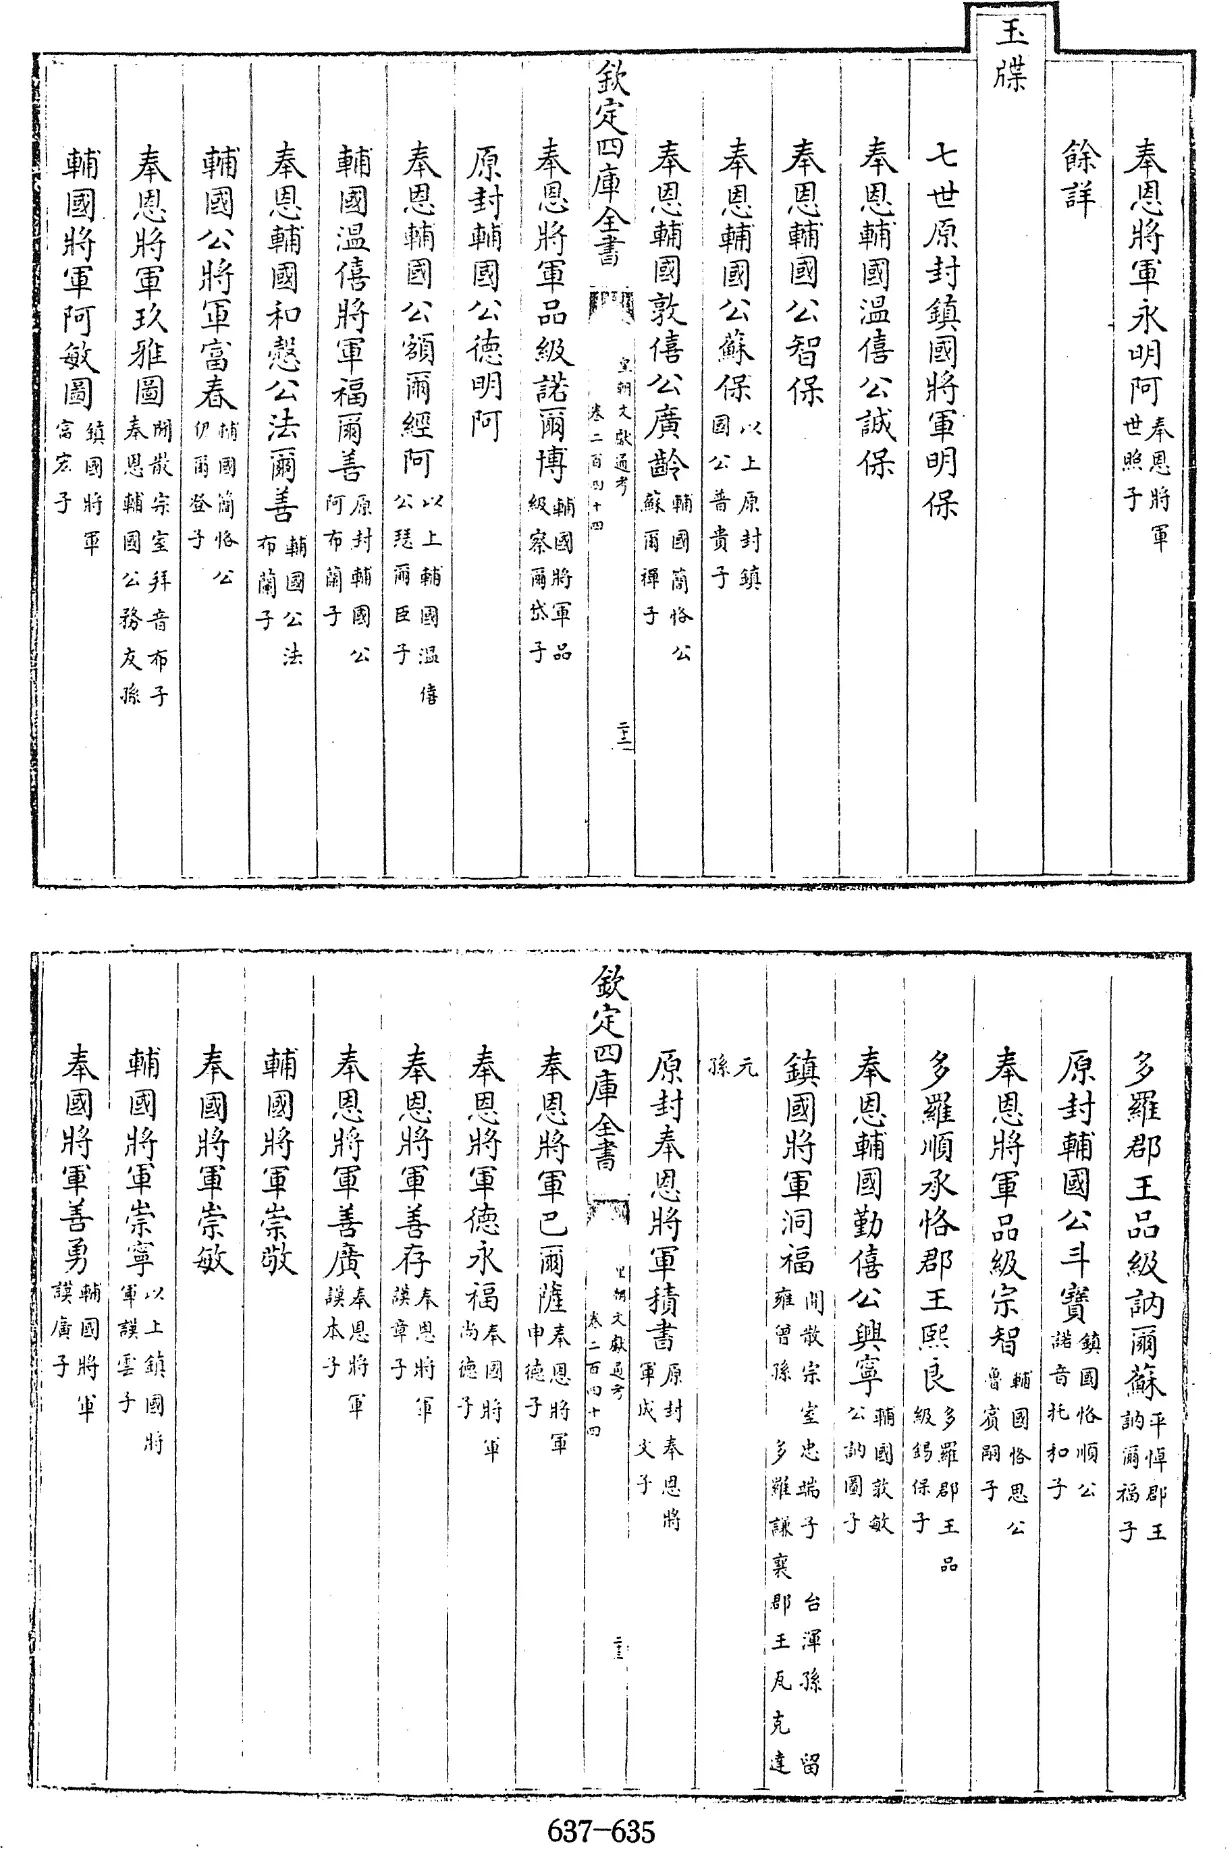 奉恩將軍永明阿奉恩將軍世照子
餘詳
玉牒
七世原封鎮國將軍明保
奉恩輔國温僖公誠保
奉恩輔國公智保
奉恩輔國公蘇保以上原封鎮國公普貴子
奉恩輔國敦僖公廣齡輔國簡恪公蘇爾禪子
欽定四庫全書 皇朝文獻通考 卷二百四十四 二十二
奉恩將軍品級諾爾博輔國將軍品級察爾岱子
原封輔國公德明阿
奉恩輔國公額爾經阿以上輔國温僖公琺爾臣子
輔國温僖將軍福爾善原封輔國公阿布蘭子
奉恩輔國和慤公法爾善輔國公法布蘭子
輔國公將軍富春輔國簡恪公伊爾登子
奉恩將軍玖雅圖閒散宗室拜音布子奉恩輔國公務友孫
輔國將軍阿敏圖鎮國將軍富宏子
多羅郡王品級訥爾蘇平悼郡王訥爾福子
原封輔國公斗寶鎮國恪順公諾音托和子
奉恩將軍品級宗智輔國恪思公魯賓嗣子
多羅順承恪郡王熙良多羅郡王品級錫保子
奉恩輔國勤僖公興寧輔國敦敏公訥圖子
鎮國將軍洞福閒散宗室忠端子 台渾孫 留雍曾孫 多羅謙襄郡王瓦克達
元孫
原封奉恩將軍積書原封奉恩將軍成文子
欽定四庫全書 皇朝文獻通考 卷二百四十四 二十三
奉恩將軍巴爾薩奉恩將軍申德子
奉恩將軍德永福奉國將軍尚德子
奉恩將軍善存奉恩將軍謨章子
奉恩將軍善廣奉恩將軍謨本子
輔國將軍崇敬
奉國將軍崇敏
輔國將軍崇寧以上鎮國將軍謨雲子
奉國將軍善勇輔國將軍謨廣子
637-635